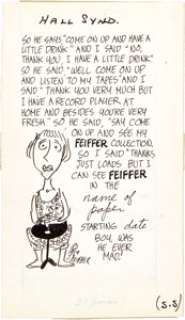 HALL SYND.
SO HE SAYS "COME ON UP AND HAVE A
LITTLE DRINK" AND I SAID "NO,
THANK YOU, I HAVE A LITTLE DRINK."
SO HE SAID, "WELL, COME ON UP
AND LISTEN TO MY TAPES" AND I
SAID "THANK YOU VERY MUCH BUT
I HAVE A RECORD PLAYER AT
HOME AND BESIDES YOU'RE VERY
FRESH." SO HE SAID, "SAY, COME
ON UP AND SEE MY
FEIFFER COLLECTION.
SO I SAID "THANKS
JUST LOADS BUT I
CAN SEE FEIFFER
IN THE
name of
paper
STARTING date
BOY, WAS
HE EVER
MAD!
FEIFFER
(S.S)